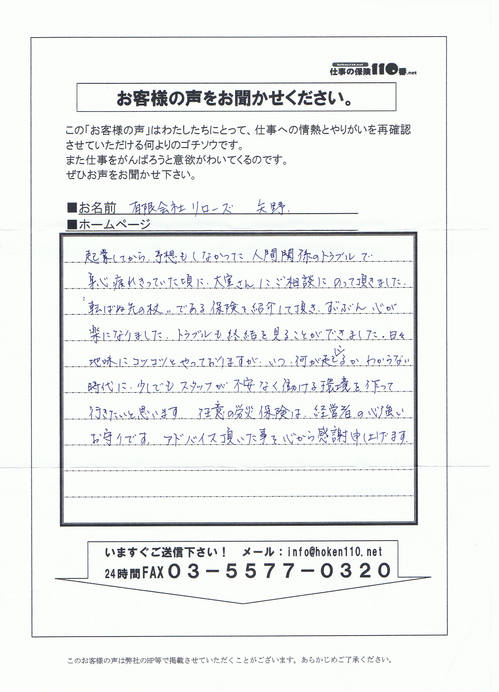 仕事の保険110番.net
お客様の声をお聞かせください。
この「お客様の声」はわたしたちにとって、仕事への情熱とやりがいを再確認
させていただける何よりのゴチソウです。
また仕事をがんばろうと意欲がわいてくるのです。
ぜひお声をお聞かせ下さい。
■お名前 有限会社リローズ 矢野.
■ホームページ
起業してから、予想もしなかった人間関係のトラブルで
身心疲れきっていた頃に、大室さんにご相談にのって頂きました.
"転ばぬ先の杖"である保険を紹介して頂き、ずいぶん心が
楽になりました。トラブルも終結を見ることができました。日々
地味にコツコツとやっておりますが、いつ、何が起こるかわからない
時代に、少しでもスタッフが不安なく働ける環境を作って
行きたいと思います. 任意の労災保険は、経営者の心強い
お守りです。アドバイス頂いた事を心から感謝申し上げます.
いますぐご送信下さい！ メール：info@hoken110.net
24時間FAX 03-5577-0320
このお客様の声は弊社のHP等で掲載させていただくことがございます。あらかじめご了承ください。